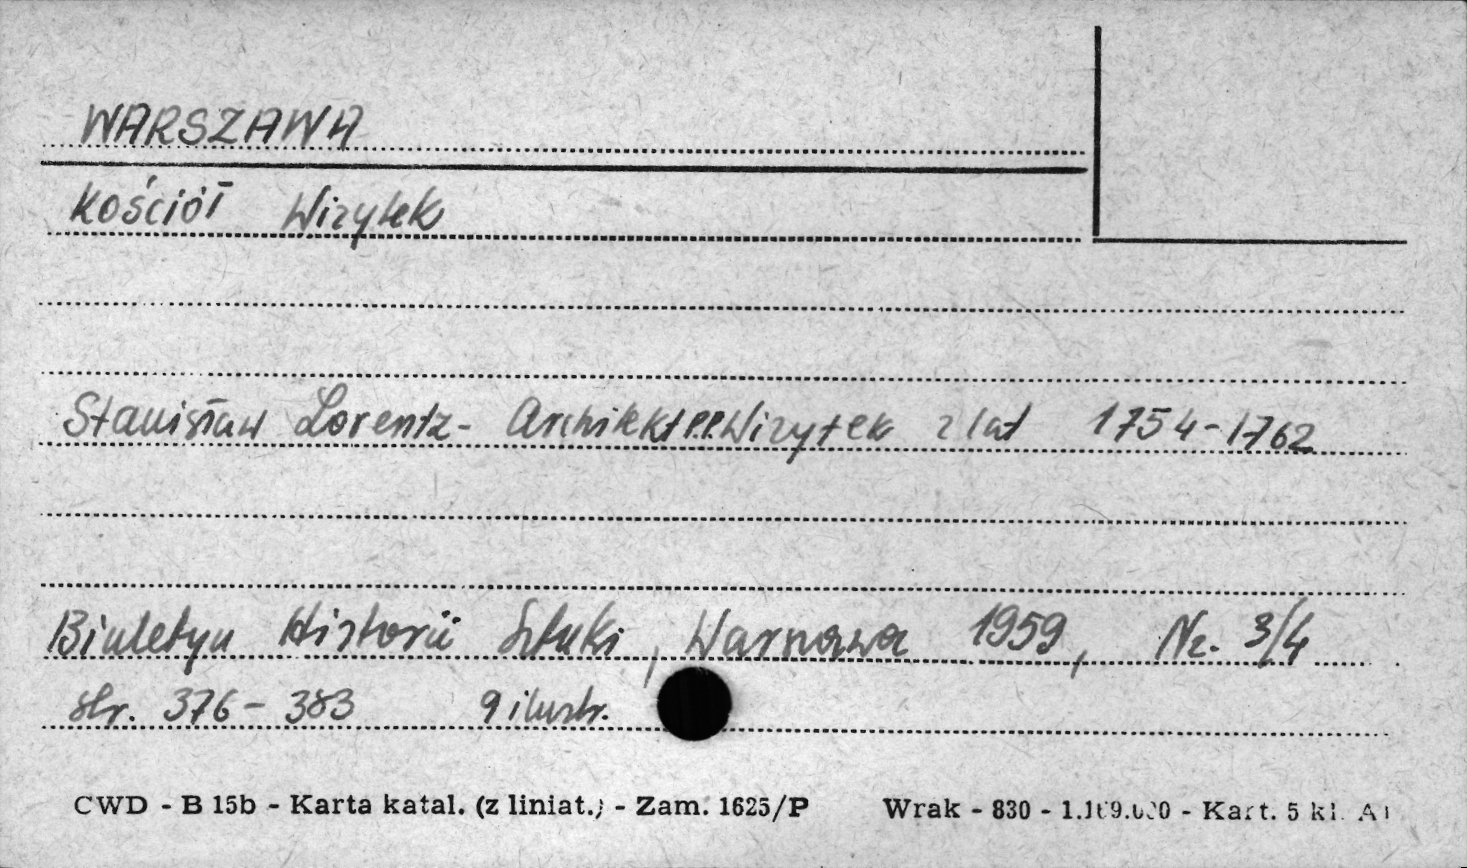 WARSZAWA
Kościół Wizytek
Stanisław Lorentz - Architekt P.P. Wizytek z lat 1754-1762
Biuletyn Historii Sztuki, Warszawa 1959, Nr. 3/4
str. 376-383 9 ilustr.
CWD - B 15b - Karta katal. (z liniat.) - Zam. 1625/P Wrak - 830 - Kart. 5 kl.